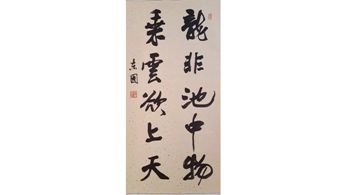 龍非池中物
乘雲欲上天
东國